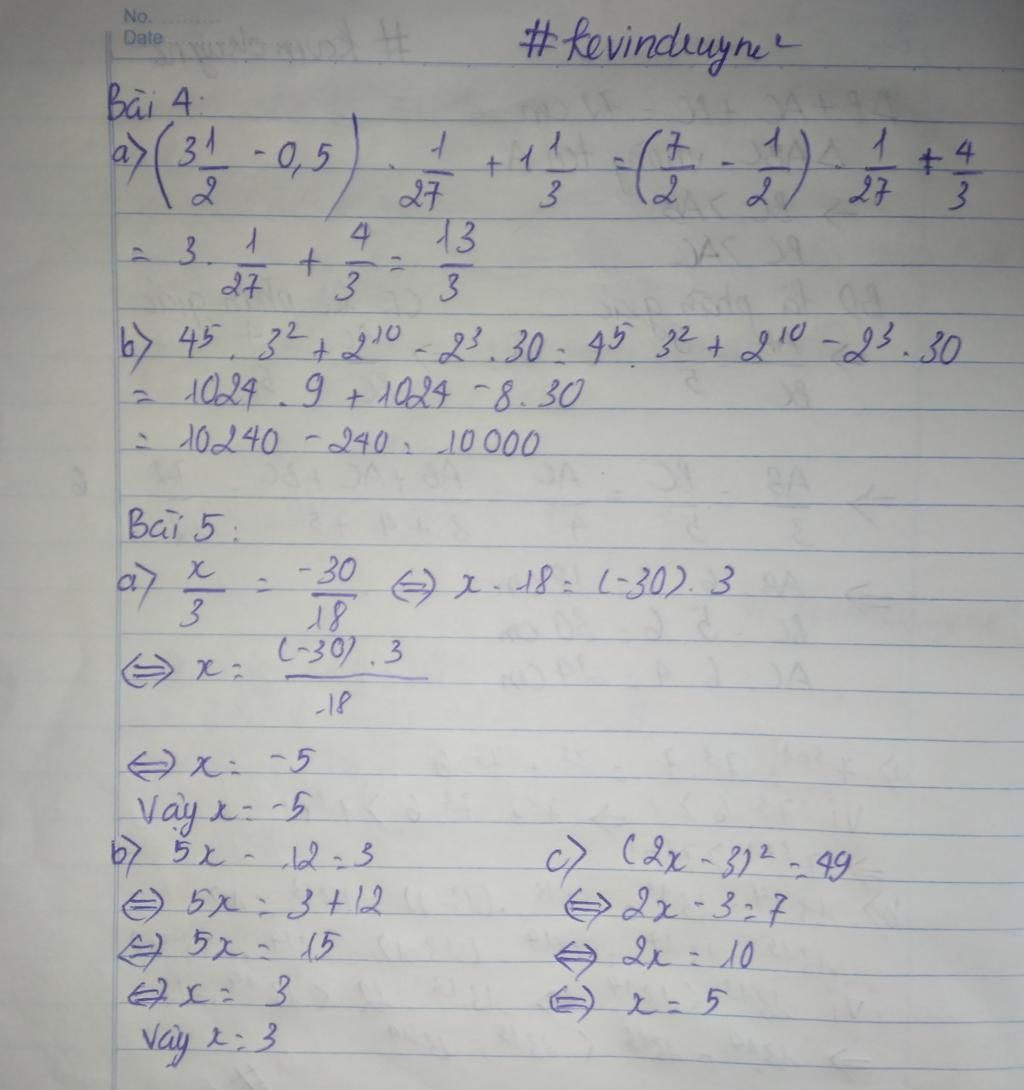 No. ..........
Date
#kevinduyne
Bài 4:
a) (3 1/2 - 0,5) . 1/27 + 1 1/3 = (7/2 - 1/2) . 1/27 + 4/3
= 3 . 1/27 + 4/3 = 13/3
b) 4⁵ . 3² + 2¹⁰ - 2³ . 30 = 4⁵ . 3² + 2¹⁰ - 2³ . 30
= 1024 . 9 + 1024 - 8 . 30
= 10240 - 240 = 10000
Bài 5:
a) x/3 = -30/18 ⇔ x . 18 = (-30) . 3
⇔ x = (-30) . 3 / 18
⇔ x = -5
Vậy x = -5
b) 5x - 12 = 3
⇔ 5x = 3 + 12
⇔ 5x = 15
⇔ x = 3
Vậy x = 3
c) (2x - 3)² = 49
⇔ 2x - 3 = 7
⇔ 2x = 10
⇔ x = 5